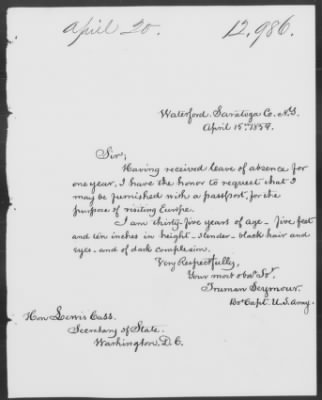 April 20. 12,986.
Waterford. Saratoga Co. N.Y.
April 15th 1859.
Sir;
Having received leave of absence for
one year, I have the honor to request that I
may be furnished with a passport, for the
purpose of visiting Europe.
I am thirty-five years of age - five feet
and ten inches in height - slender - black hair and
eyes - and of dark complexion.
Very Respectfully,
Your most obdt. Svt.
Truman Seymour.
Bvt Capt. U.S. Army.
Hon Lewis Cass.
Secretary of State.
Washington, D.C.